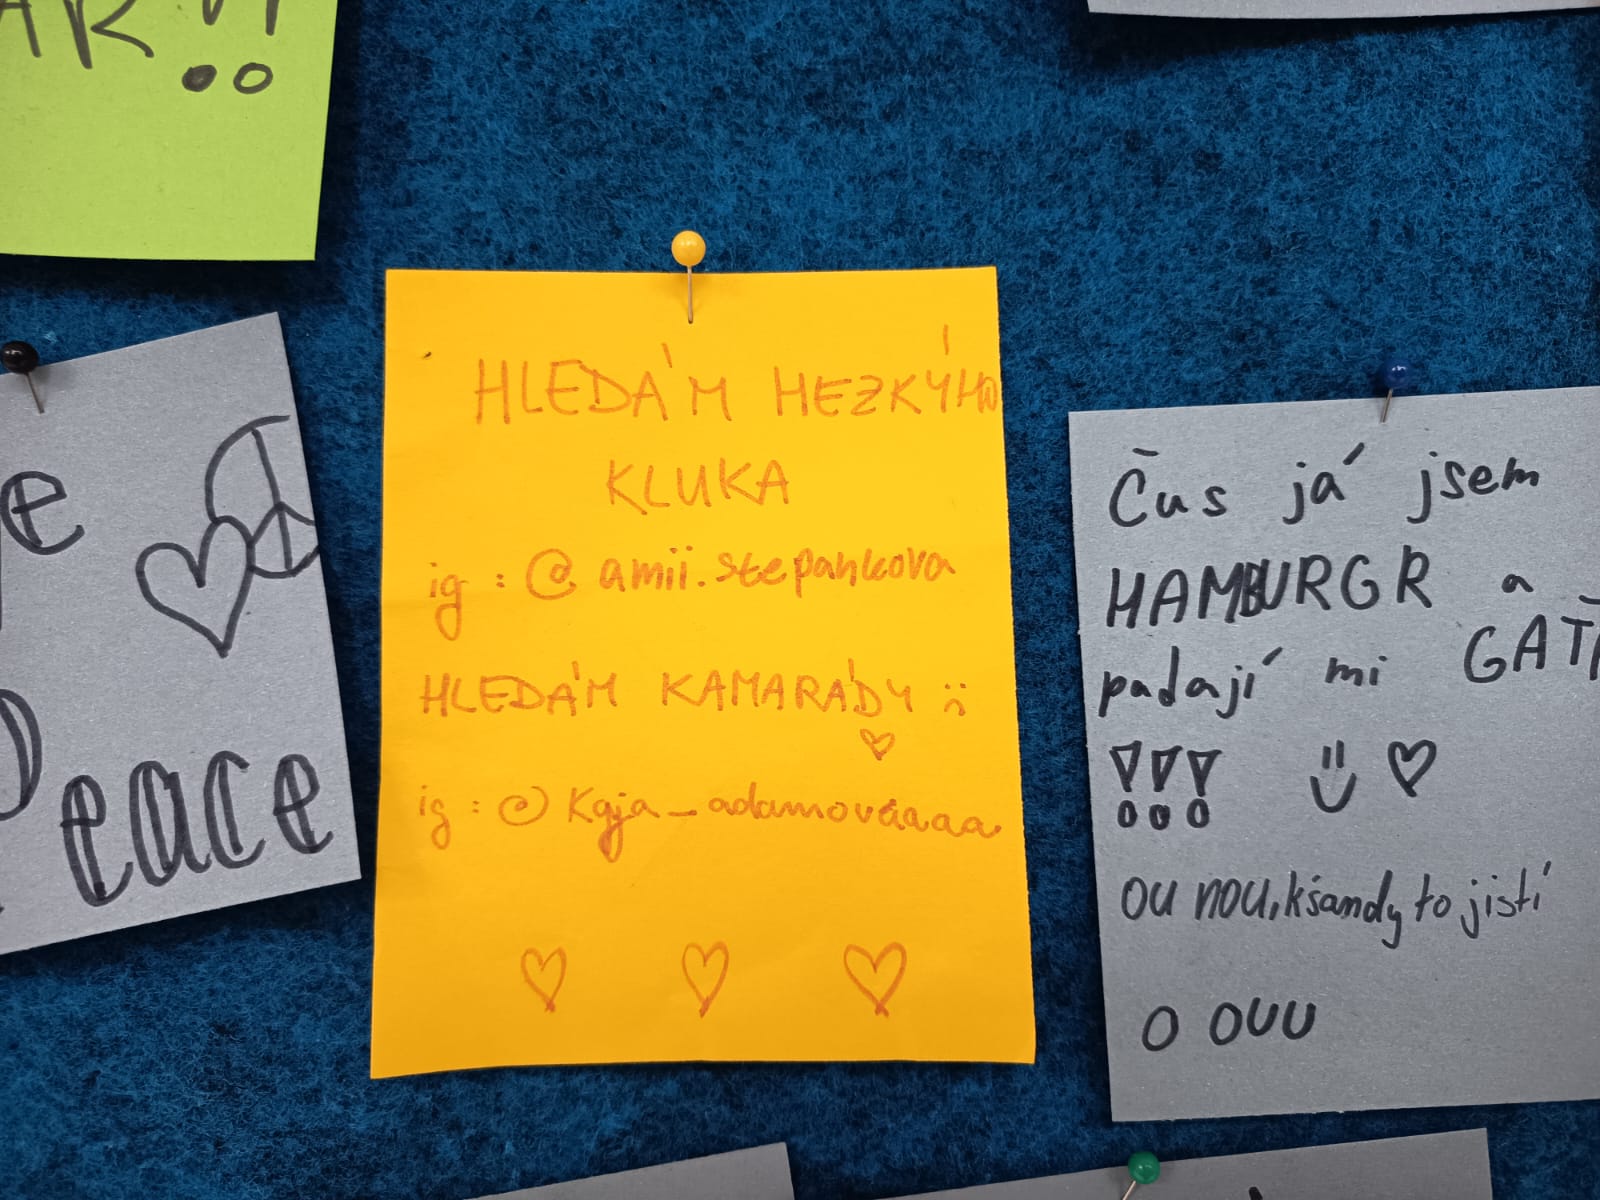 AR!!
e
Peace
HLEDÁM HEZKÝHO
KLUKA
ig : @ amii.stepankova
HLEDÁM KAMARÁDY :(
ig : @ Kaja_adamováaaa
Čus já jsem
HAMBURGR a
padají mi GATĚ
!!! :) ♡
OU NOU, kšandy to jistí
O OUU